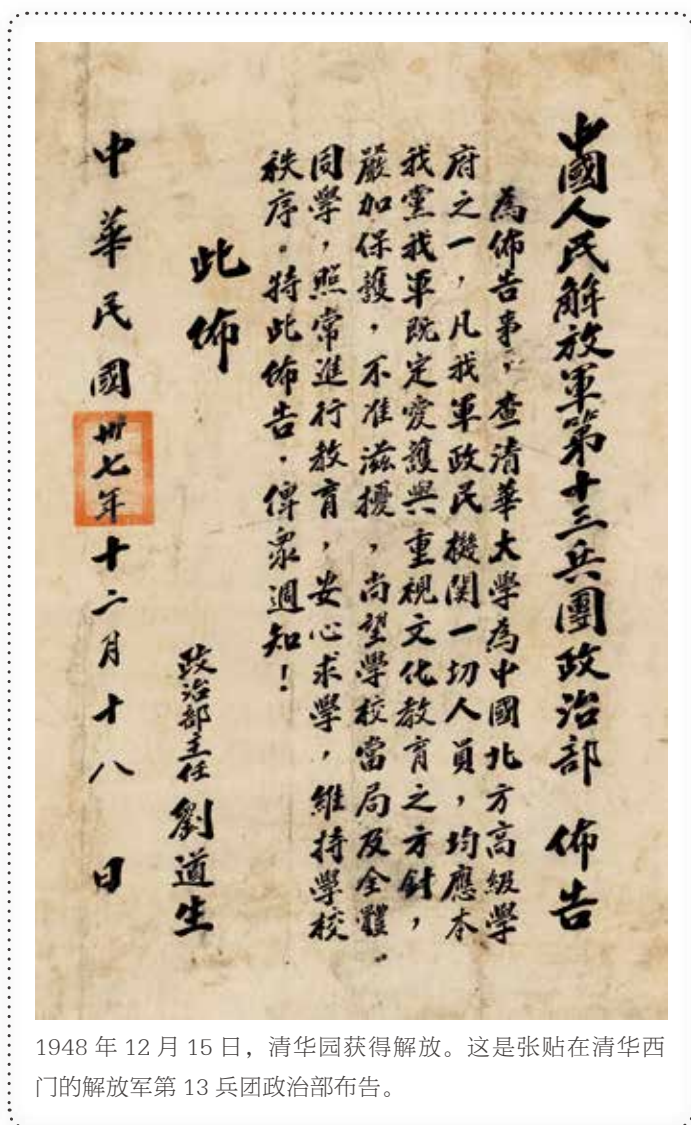 中國人民解放軍第十三兵團政治部 佈告
為佈告事:查清華大学為中國北方高級學
府之一,凡我軍政民機関一切人員,均應本
我黨我軍既定愛護與重視文化教育之方針,
嚴加保護,不准滋擾,尚望學校當局及全體
同學,照常進行教育,安心求學,維持學校
秩序。特此佈告,俾衆週知!
此佈
政治部主任 劉道生
中華民國卅七年十二月十八日
1948 年 12 月 15 日,清华园获得解放。这是张贴在清华西
门的解放军第 13 兵团政治部布告。